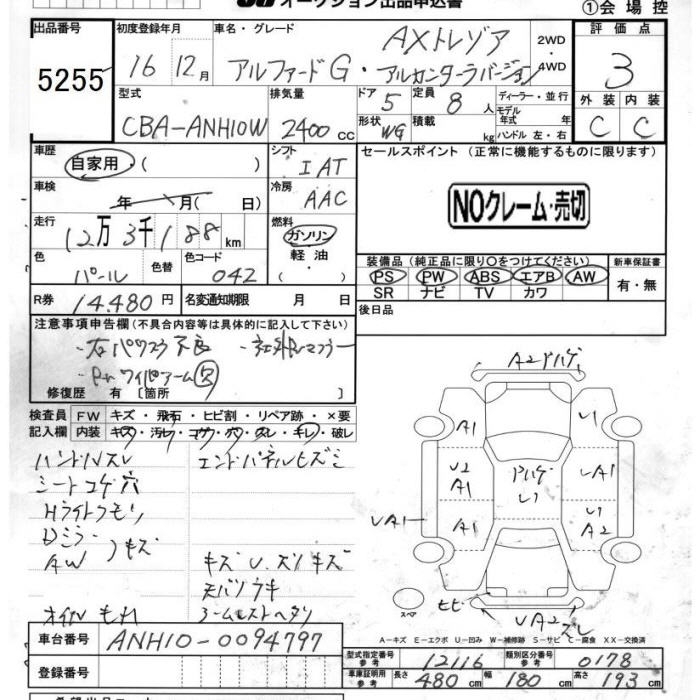 オークション出品申込書
①会場控
出品番号 初度登録年月 車名・グレード 評価点
5255
16 12月 AXトレゾア 2WD・4WD 3
アルファードG・アルカンターラバージョン
型式 排気量 ドア 5 定員 8人 ディーラー・並行 外装 内装
モデル年式 年
CBA-ANH10W 2400cc 形状 WG 積載 kg ハンドル 左・右 C C
車歴 シフト セールスポイント (正常に機能するものに限ります)
自家用・( ) IAT
車検 冷房
年 月( 日) AAC NOクレーム・売切
走行 燃料
12万3千188km ガソリン
軽油
・( )
色 色替 色コード
パール 042
装備品(純正品に限り○をつけてください) 新車保証書
PS PW ABS エアB AW 有・無
SR ナビ TV カワ
R券 14.480円 名変通知期限 月 日 後日品
注意事項申告欄(不具合内容等は具体的に記入して下さい)
・右パワスラ不良 ・社外マフラー
・Rrワイパーアーム欠
修復歴 有[箇所 ]
検査員 FW キズ・飛石・ヒビ割・リペア跡・×要
記入欄 内装 キズ・汚レ・コゲ・穴・スレ・キレ・破レ
ハンドルスレ エンドパネルヒズミ
シートコゲ穴
Hライトクモリ
Dミラー
AW キズ
キズ U.ズリキズ
天バリウキ
オイルもれ アームレストヘタリ
A2ハゲ
A1 U1
U2 A1 ハゲ U1 UA1
UA1 A1 U1 A2
スペア ヒビ UA2 スレ
A-キズ E-エクボ U-凹み W-補修跡 S-サビ C-腐食 XX-交換済
車台番号 ANH10-0094797
登録番号
型式指定番号 参考 12116 類別区分番号 参考 0178
車庫証明用 参考 長さ 480cm 幅 180cm 高さ 193cm